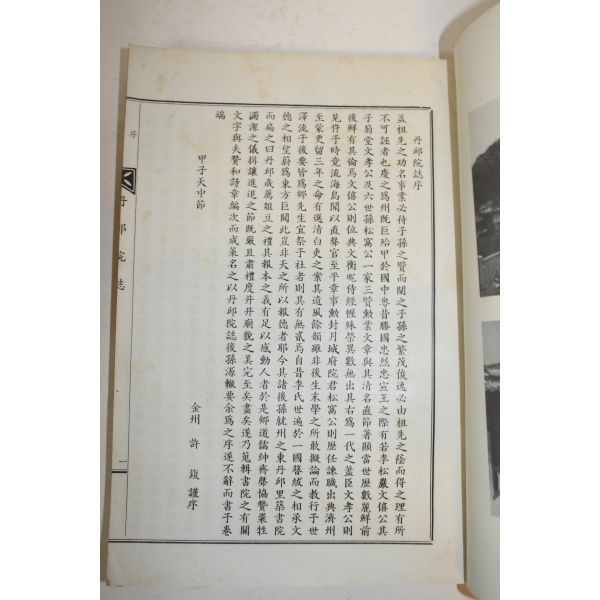 丹邱院誌序
盖祖先之功名事業必待子孫之賢而闡之子孫之繁茂俊逸必由祖先之蔭而得之理有所
不可誣者也慶之爲州旣巨殆甲於國中粤昔勝國忠烈忠宣王之際有若李松巖文僖公其
子菊堂文孝公及六世孫松窩公一家三賢勳業文章與其清名直節著顯當世歷數麗鮮前
後鮮有其倫焉文僖公則位典文衡昵侍經幄殊榮異數無出其右爲一代之藎臣文孝公則
見忤于時竟流海島闋以直聲官至平章事勳封月城府院君松窩公則歷任諫職出典濟州
至蒙更留三年之命有選清白吏之案其遺風餘韻雖非後生末學之所敢擬論而教行于世
澤流于後要皆爲鄉先生宜祭于社者則具有無貳焉自昔李氏世遍於一國簪紱之相承文
德之相望蔚爲東方巨閥此豈非天之所以報德者耶今其諸後孫就州之東丹邱里築書院
而扁之曰丹邱歲薦俎豆之禮其報本之義有足以感動人者於是鄉道儒紳齊聲協贊粢牲
蠲潔之儀揖讓進退之節旣嚴且肅禮度井井廟貌之美完至矣盡矣遂乃蒐輯書院之有關
文字與夫贊和詩章編次而成藁名之以丹邱院誌後孫源轍要余爲之序遂不辭而書于卷
端
甲子天中節
金州 許 鏇 謹序
序
丹邱院誌
一